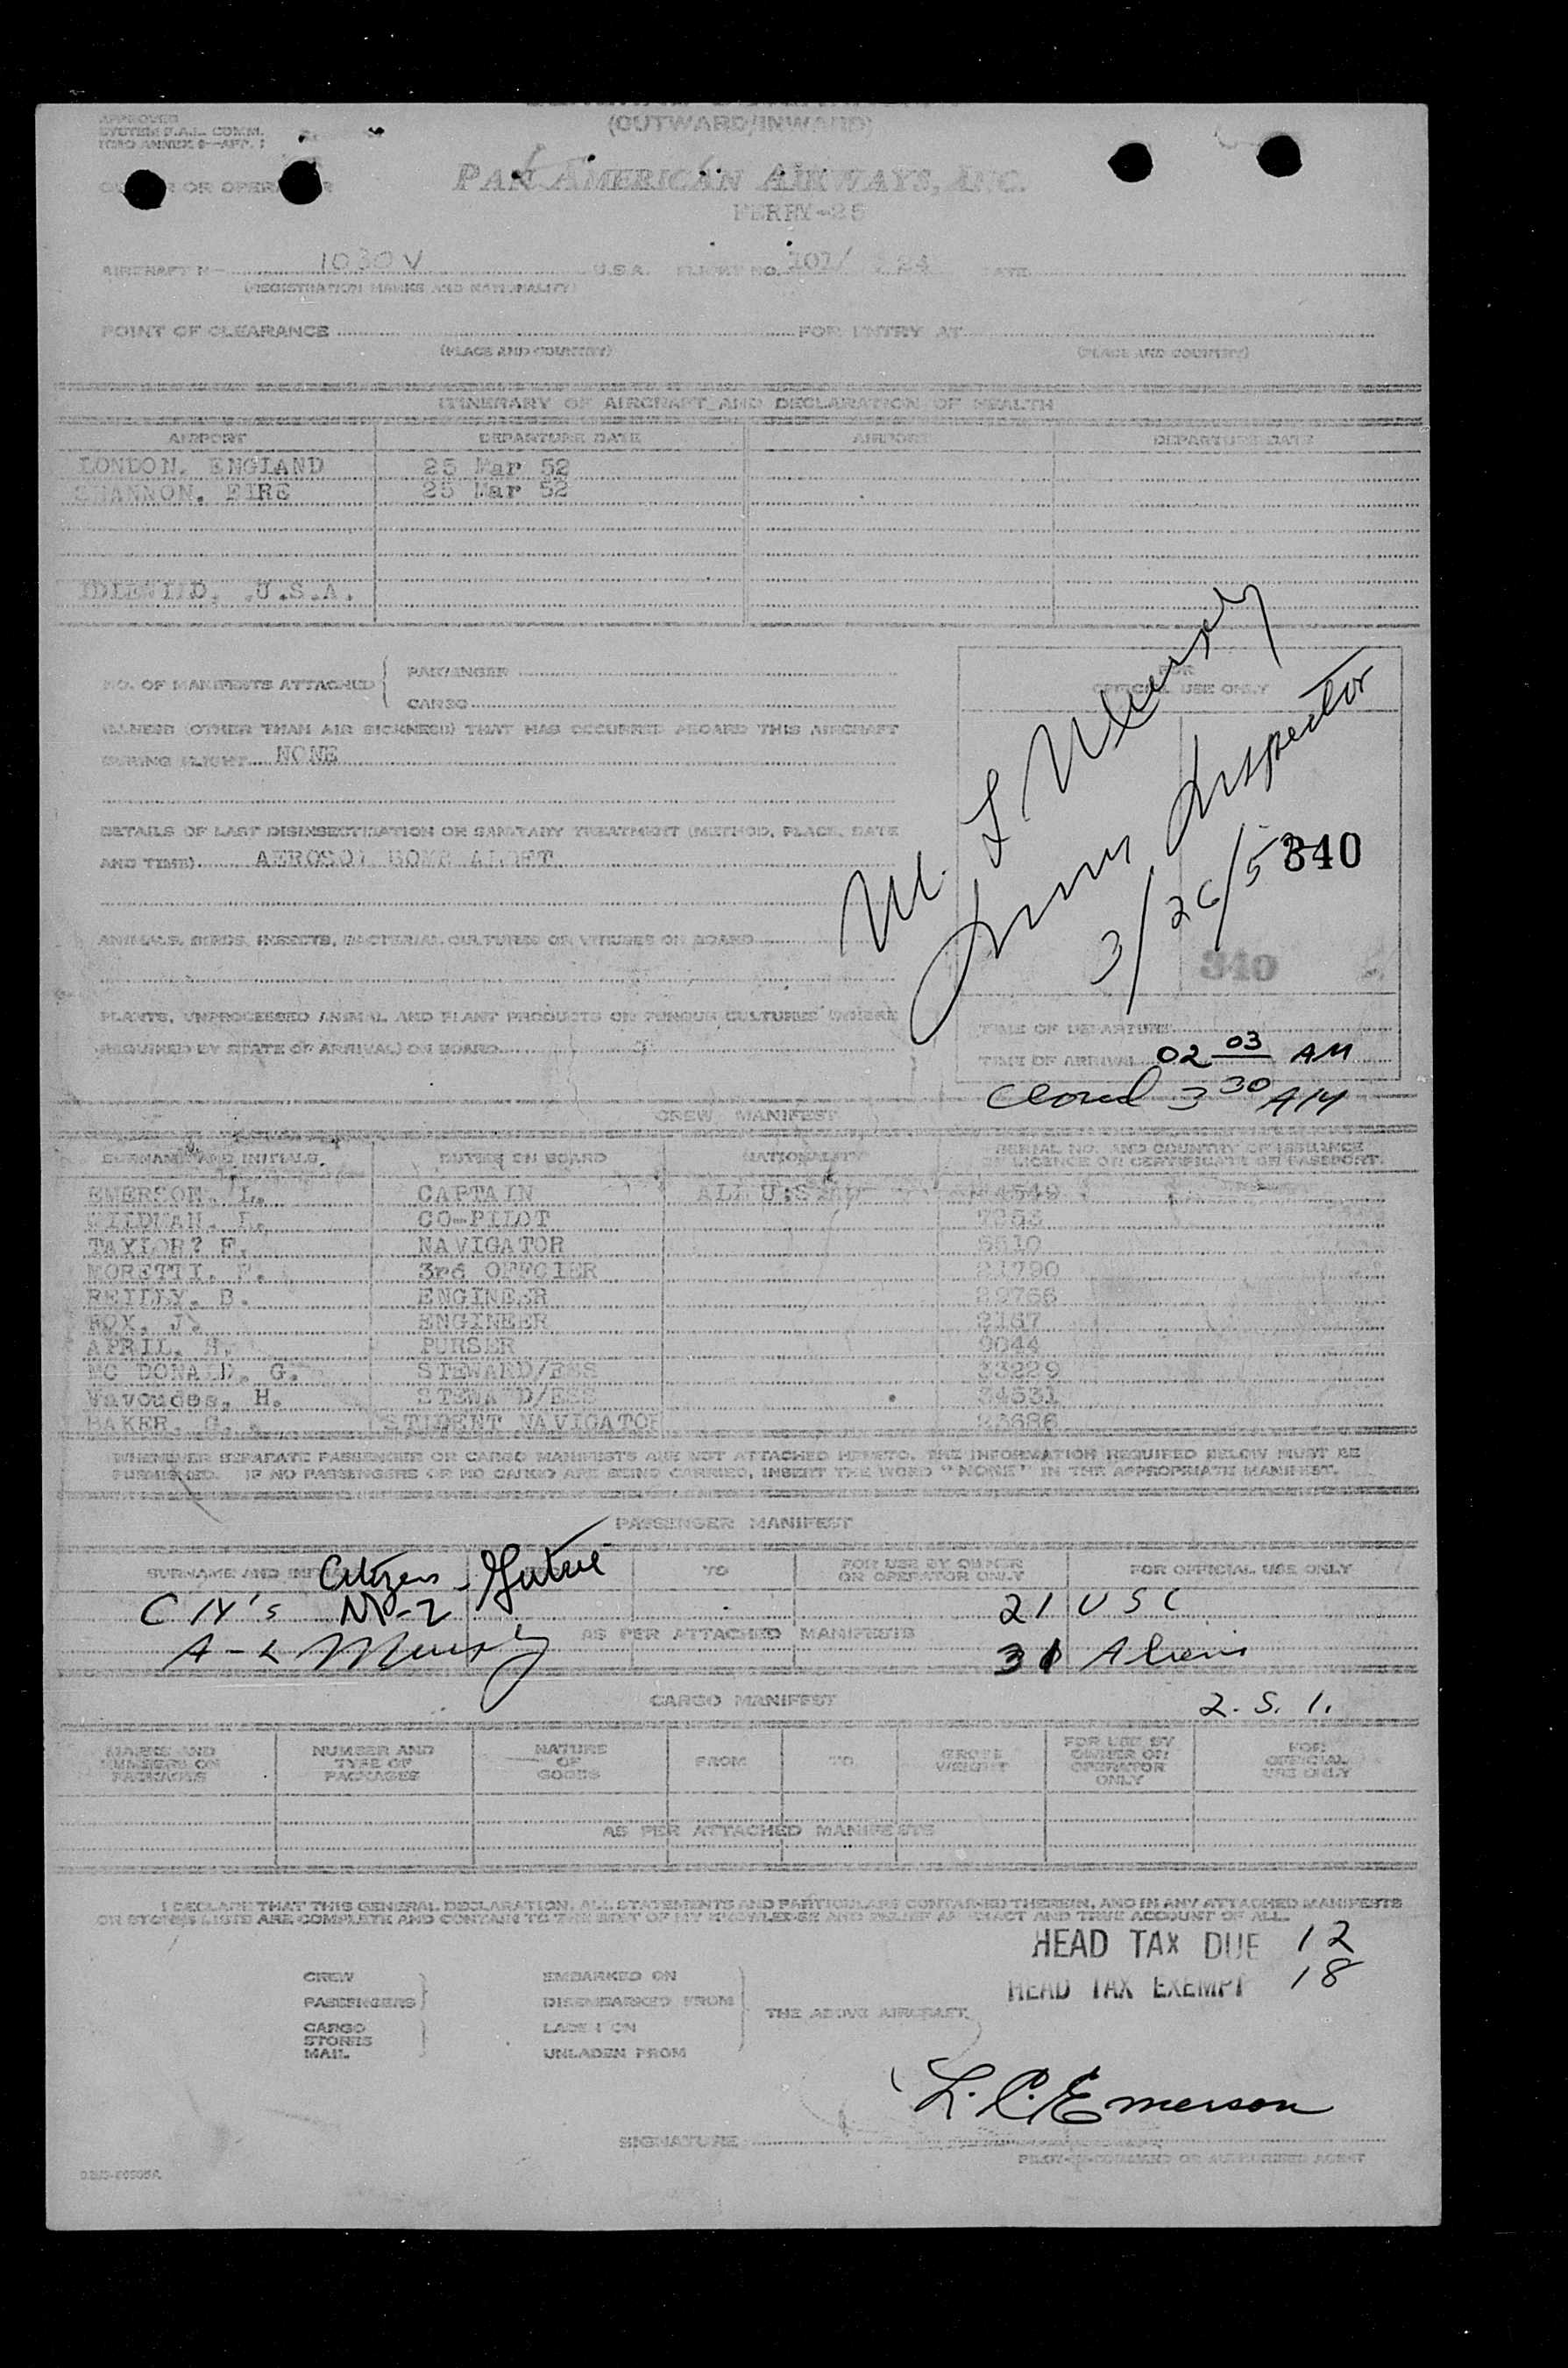 (OUTWARD/INWARD)
APPROVED
SYSTEM F.A.L. COMM.
ICAO ANNEX 9—APP. 1
OWNER OR OPERATOR
PAN AMERICAN AIRWAYS, INC.
FERRY-25
AIRCRAFT N— 1030V U.S.A. FLIGHT NO. 101/ DATE
(REGISTRATION MARKS AND NATIONALITY)
POINT OF CLEARANCE FOR ENTRY AT
(PLACE AND COUNTRY) (PLACE AND COUNTRY)
ITINERARY OF AIRCRAFT AND DECLARATION OF HEALTH
AIRPORT DEPARTURE DATE AIRPORT DEPARTURE DATE
LONDON. ENGLAND 25 Mar 52
SHANNON. EIRE 25 Mar 52
IDLEWILD. .U.S.A.
NO. OF MANIFESTS ATTACHED { PASSENGER
CARGO
FOR
OFFICIAL USE ONLY
ILLNESS (OTHER THAN AIR SICKNESS) THAT HAS OCCURRED ABOARD THIS AIRCRAFT
DURING FLIGHT NONE
DETAILS OF LAST DISINSECTIZATION OR SANITARY TREATMENT (METHOD, PLACE, DATE
AND TIME) AEROSOL BOMB ALOFT
Inspector
3/26/5
340
340
ANIMALS, BIRDS, INSECTS, BACTERIAL CULTURES OR VIRUSES ON BOARD
PLANTS, UNPROCESSED ANIMAL AND PLANT PRODUCTS OR FUNGUS CULTURES (WHERE
REQUIRED BY STATE OF ARRIVAL) ON BOARD
TIME OF DEPARTURE
TIME OF ARRIVAL 02 03 AM
Closed 3 30 AM
CREW MANIFEST
SURNAME AND INITIALS. DUTIES ON BOARD NATIONALITY SERIAL NO. AND COUNTRY OF ISSUANCE
OF LICENCE OR CERTIFICATE OR PASSPORT.
EMERSON. L. CAPTAIN ALL U.S. 4549
WILDMAN. L. CO-PILOT
TAYLOR? F. NAVIGATOR 5510
MORETTI. 3rd OFFCIER 21790
REILLY. B. ENGINEER 29766
FOX. J. ENGINEER 2167
APRIL. H. PURSER 9044
MC DONA D. G. STEWARD/ESS 33229
Vavoudes, H. STEWA D/ESS 34531
BAKER. G. STUDENT NAVIGATOR 23686
WHENEVER SEPARATE PASSENGER OR CARGO MANIFESTS ARE NOT ATTACHED HERETO, THE INFORMATION REQUIRED BELOW MUST BE
FURNISHED. IF NO PASSENGERS OR NO CARGO ARE BEING CARRIED, INSERT THE WORD "NONE" IN THE APPROPRIATE MANIFEST.
PASSENGER MANIFEST
SURNAME AND INITIALS TO FOR USE BY OWNER
OR OPERATOR ONLY FOR OFFICIAL USE ONLY
Citizens
NP-2 21 USC
AS PER ATTACHED MANIFESTS
A-L 31 Aliens
CARGO MANIFEST
2. S. I.
MARKS AND
NUMBERS ON
PACKAGES NUMBER AND
TYPE OF
PACKAGES NATURE
OF
GOODS FROM TO GROSS
WEIGHT FOR USE BY
OWNER OR
OPERATOR
ONLY FOR
OFFICIAL
USE ONLY
AS PER ATTACHED MANIFESTS
I DECLARE THAT THIS GENERAL DECLARATION, ALL STATEMENTS AND PARTICULARS CONTAINED THEREIN, AND IN ANY ATTACHED MANIFESTS
OR STORES LISTS ARE COMPLETE AND CONTAIN TO THE BEST OF MY KNOWLEDGE AND BELIEF AN EXACT AND TRUE ACCOUNT OF ALL.
HEAD TAX DUE 12
HEAD TAX EXEMPT 18
CREW EMBARKED ON
PASSENGERS DISEMBARKED FROM
THE ABOVE AIRCRAFT.
CARGO LADEN ON
STORES
MAIL UNLADEN FROM
L. C. Emerson
SIGNATURE
PILOT-IN-COMMAND OR AUTHORIZED AGENT